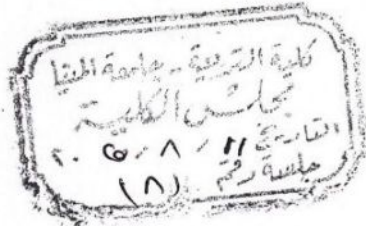 كلية التربية - جامعة المنيا
مجلس الكلية
التاريخ / ٨ /
جلسة رقم (٨)